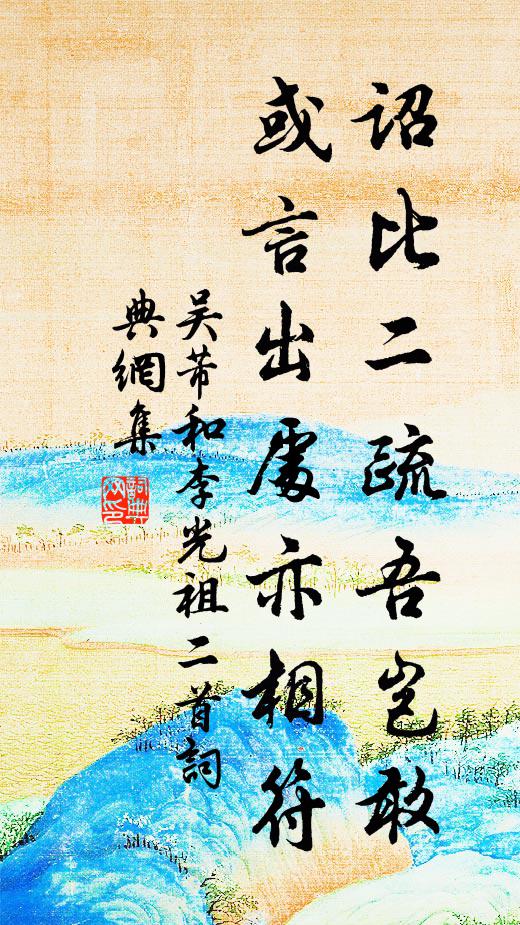 詔比二疏吾豈敢
或言出處亦相符
吴芾和李光祖二首詞
典網集